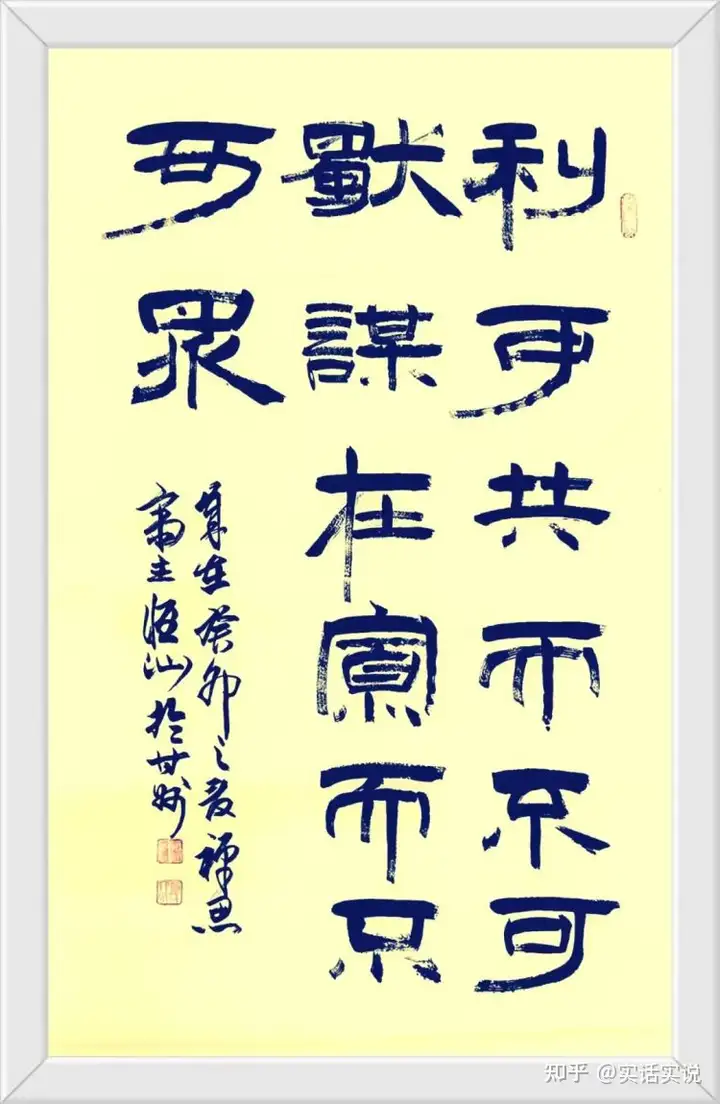 利可共而不可
獨謀在寡而不
可眾
歲在癸卯之夏禪思
齋主恆山於甘州
知乎 @实话实说